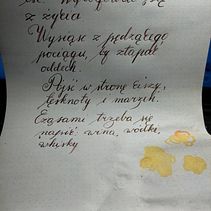 z życia
Wysiąść z pędzącego
pociągu, by złapać
oddech.
Pójść w stronę ciszy,
tęsknoty i marzeń.
Czasami trzeba się
napić wina, wódki,
whisky